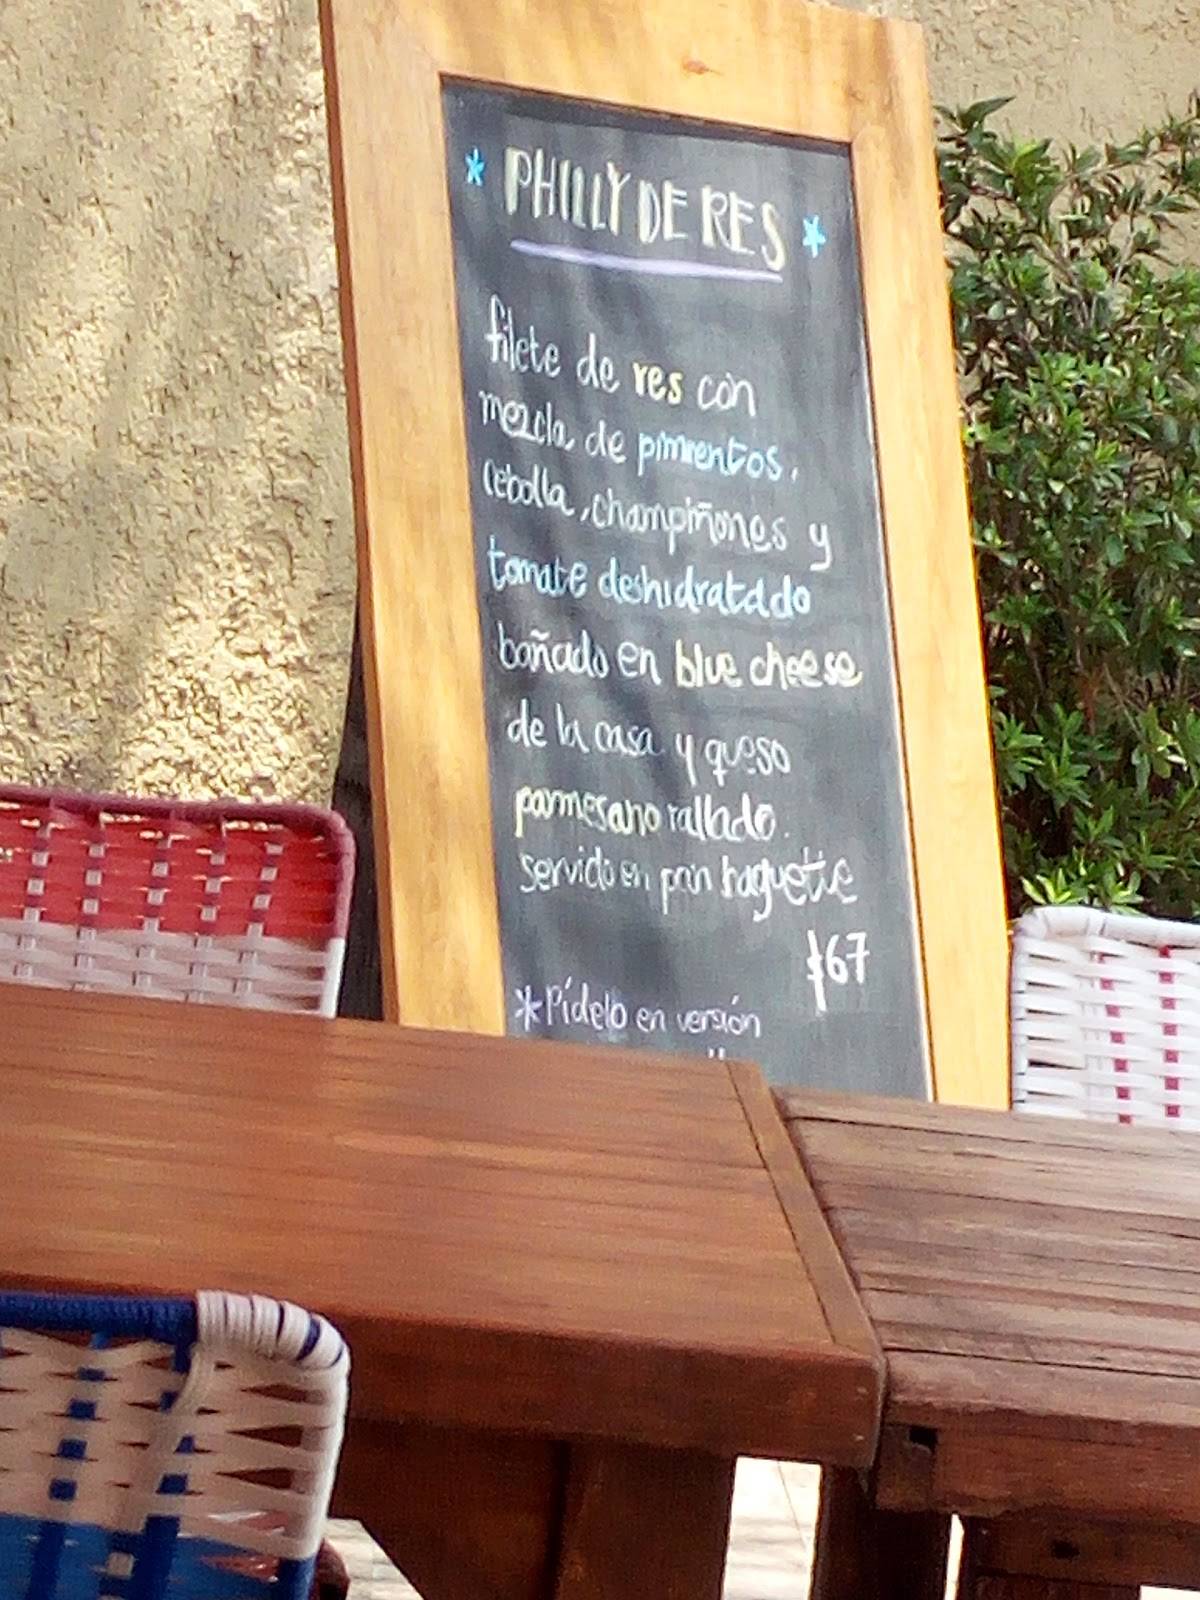 * PHILLY DE RES *
filete de res con
mezcla de pimientos,
cebolla, champiñones y
tomate deshidratado
bañado en blue cheese
de la casa y queso
parmesano rallado.
servido en pan baguette
$67
*Pídelo en versión